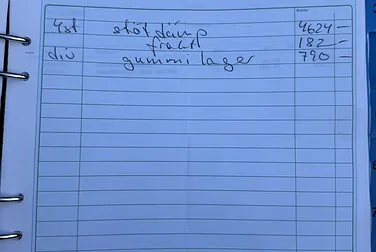 4st stötdämp 4624 –
frakt 182 –
div gummilager 790 –